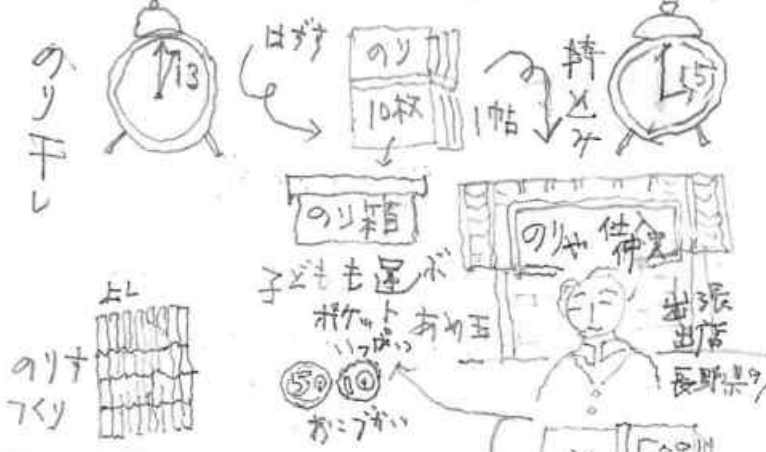 のり干し
13
はずす
のり
10枚
1帖
持込み
15
のり箱
のりや
子どもも運ぶ
ポケット
いっぱい
あめ玉
50
10
おこづかい
出張
出店
長野県
よし
のりす
つくり